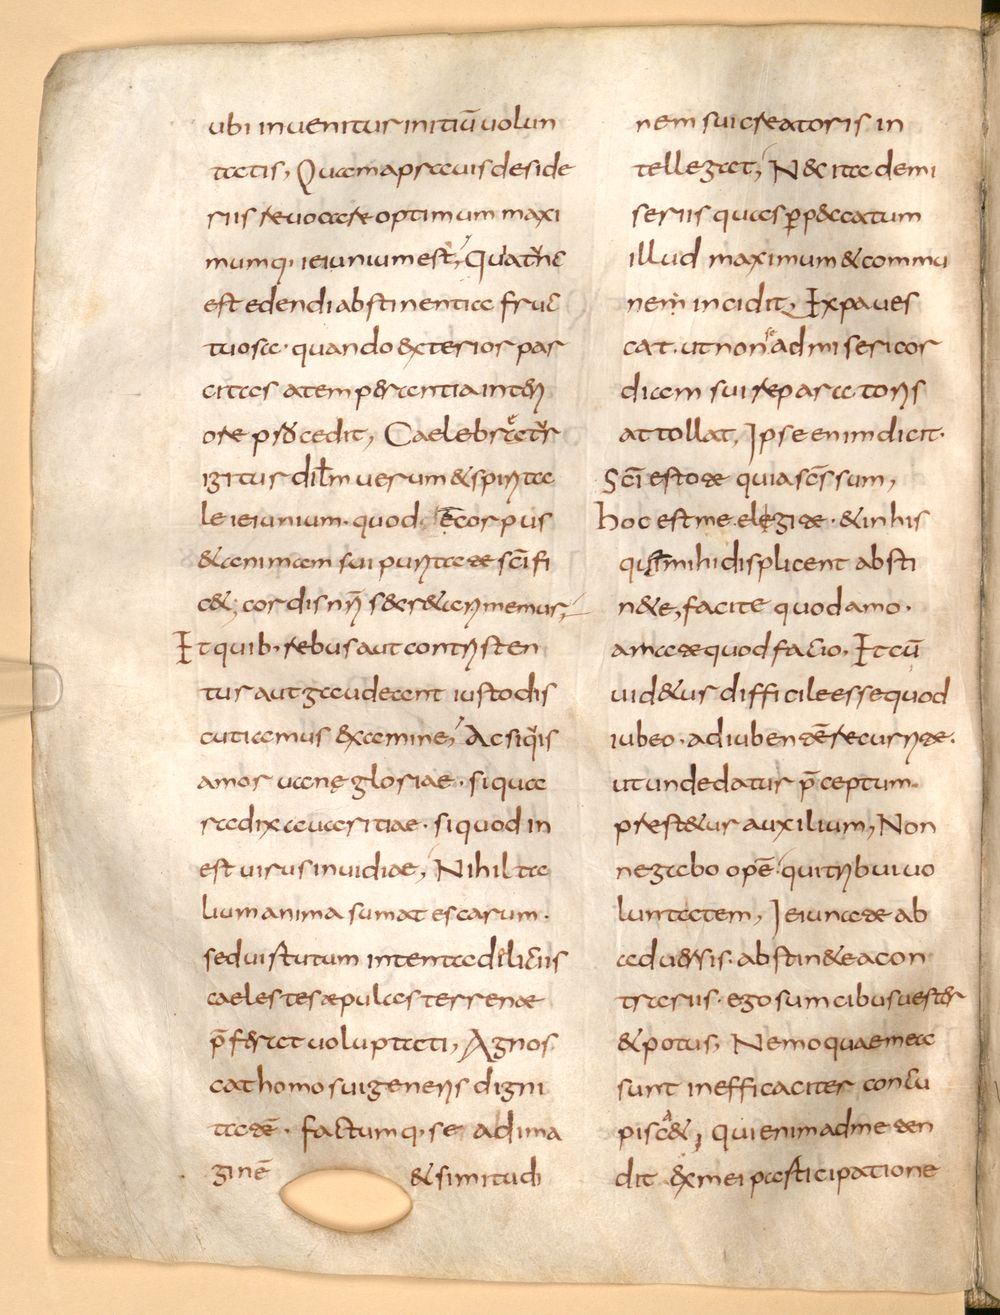 ubi inuenitur initiū uolun
tatis, Quam a prauis deside
riis reuocare optimum maxi
mumq· ieiunium est, Qua tn̄c
est edendi abstinentia fruc
tuosa· quando exterior par
citas a temperantia interi
ore procedit, Caelebraetur
igitur dilm uerum & spirita
le ieiunium· quod ēcorpus
& animam sui puritate sc̄ifi
c&; cordis nr̄i secr&a rimemur,
Et quib· rebus aut contristen
tur aut gaudeant iusto dis
cutiamus examine, Ac si quis
amor uanę gloriae· si qua
radix auaritiae· si quod in
est uirus inuidiae, Nihil ta
lium anima sumat escarum·
sed uirtutum intenta diliciis
caelestes aepulas terrenae
p̄ferat uoluptati, Agnos
cat homo sui generis digni
tatē· factumq· se ad ima
ginē & similitudi
nem sui creatoris in
tellegat, Nec ita de mi
seriis quas p̱ peccatum
illud maximum & commu
nem incidit, Expaues
cat· ut non se ad misericor
diam sui reparatoris
attollat, Ipse enim dicit·
Sc̄i estote quia sc̄s sum,
hoc est me elegite· & in his
quę mihi displicent absti
n&e, facite quod amo·
amate quod facio· Et cū
uid&ur difficile esse quod
iubeo· ad iubentē recurrite·
ut unde datur p̄ceptum·
prest&ur auxilium, Non
negabo opē qui tribui uo
luntatem, Ieiunate ab
aduersis· abstin&e a con
trariis· ego sum cibus uester
& potus, Nemo quae mea
sunt inefficaciter concu
pisc&, qui enim ad me ten
dit ex mei participatione